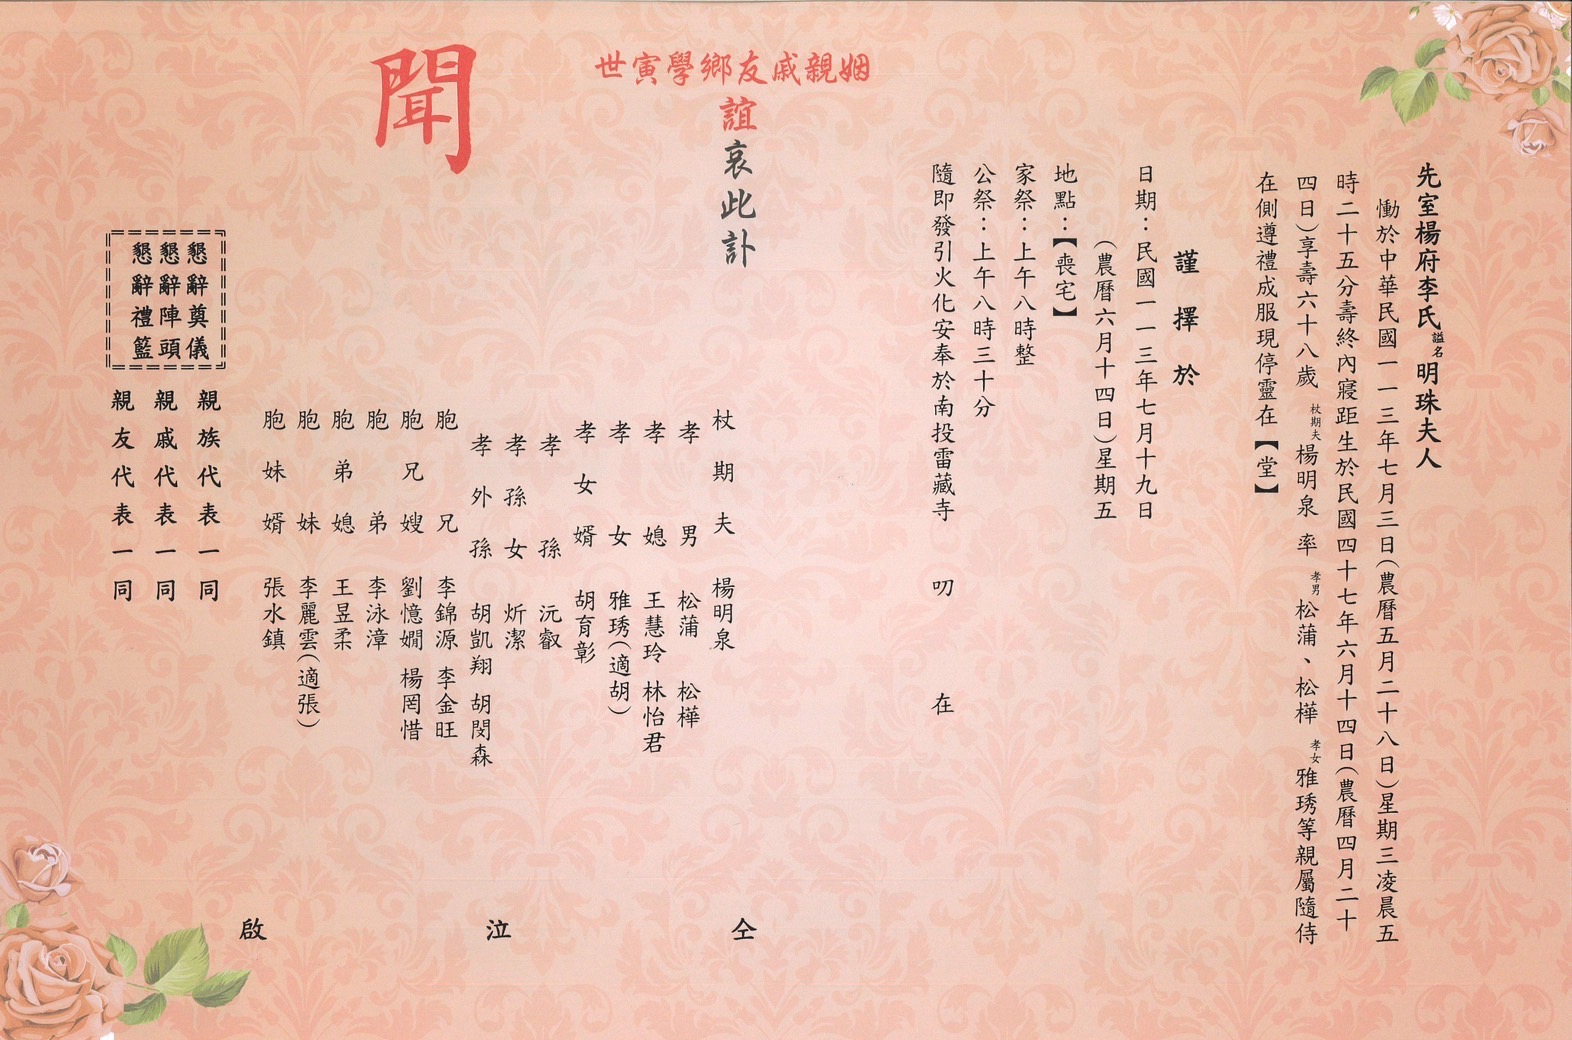 先室楊府李氏諡名明珠夫人
慟於中華民國一一三年七月三日(農曆五月二十八日)星期三凌晨五
時二十五分壽終內寢距生於民國四十七年六月十四日(農曆四月二十
四日)享壽六十八歲 杖期夫 楊明泉 率 孝男 松蒲、松樺 孝女 雅琇等親屬隨侍
在側遵禮成服現停靈在【堂】
謹擇於
日期：民國一一三年七月十九日
(農曆六月十四日)星期五
地點：【喪宅】
家祭：上午八時整
公祭：上午八時三十分
隨即發引火化安奉於南投雷藏寺 叨在
姻親戚友鄉學寅世
誼哀此訃
聞
杖期夫 楊明泉
孝男 松蒲 松樺
孝媳 王慧玲 林怡君
孝女 雅琇(適胡)
孝女婿 胡育彰
孝孫 沅叡
孝孫女 炘潔
孝外孫 胡凱翔 胡閔森
胞兄 李錦源 李金旺
胞兄嫂 劉憶嫺 楊罔惜
胞弟 李泳漳
胞弟媳 王昱柔
胞妹 李麗雲(適張)
胞妹婿 張水鎮
仝泣啟
懇辭奠儀
懇辭陣頭
懇辭禮籃
親族代表一同
親戚代表一同
親友代表一同